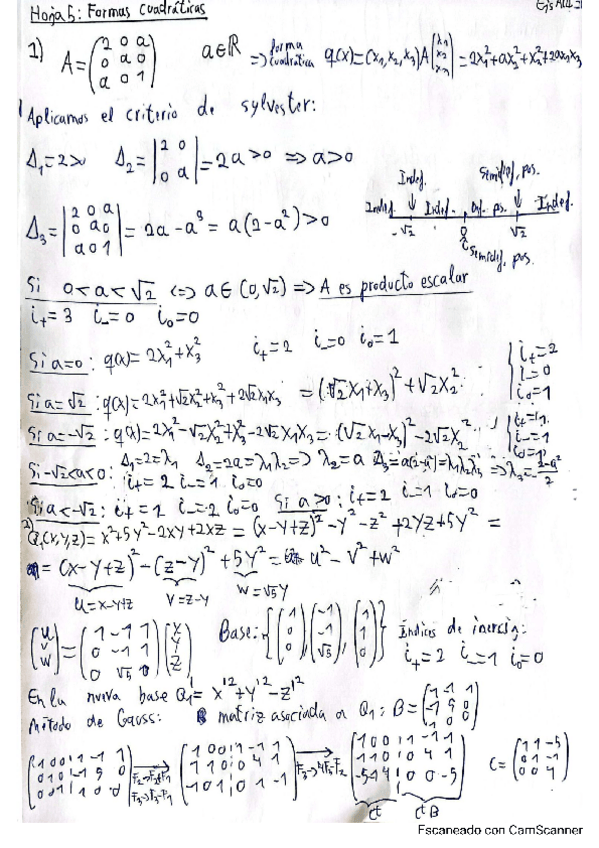 Hoja 5: Formas cuadráticas
1) A = (2 0 a; 0 a 0; a 0 1) a∈ℝ => forma cuadrática q(x)=(x₁,x₂,x₃)A(x₁; x₂; x₃) = 2x₁²+ax₂²+x₃²+2ax₁x₃
Aplicamos el criterio de sylvester:
Δ₁=2> Δ₂=|2 0; 0 a|=2a>0 => a>0
Indef. Semidef. pos.
Indef. Indef. Def. pos. Indef.
-√2 0 √2
Semidef. pos.
Δ₃=|2 0 a; 0 a 0; a 0 1|=2a-a³=a(2-a²)>0
Si a<a<√2 <=> a∈(0,√2) => A es producto escalar
i₊=3 i₋=0 i₀=0
Si a=0: q(x)=2x₁²+x₃² i₊=2 i₋=0 i₀=1 { i₊=2 i₋=0 i₀=1
Si a=√2: q(x)=2x₁²+√2x₂²+x₃²+2√2x₁x₃ = (√2x₁+x₃)²+√2x₂²
Si a=-√2: q(x)=2x₁²-√2x₂²+x₃²-2√2x₁x₃=(√2x₁-x₃)²-2√2x₂² { i₊=1 i₋=1 i₀=1
Si -√2<a<0: Δ₁=2=λ₁ Δ₂=2a=λ₁λ₂=> λ₂=a Δ₃=a(2-a²)=λ₁λ₂λ₃ => λ₃=(2-a²)/2
i₊=2 i₋=1 i₀=0
Si a<-√2: i₊=1 i₋=2 i₀=0 Si a>0: i₊=2 i₋=1 i₀=0
2) Q₁(x,y,z)=x²+5y²-2xy+2xz=(x-y+z)²-y²-z²+2yz+5y²=
=(x-y+z)²-(z-y)²+5y²=u²-v²+w²
u=x-y+z v=z-y w=√5y
(u; v; w)=(1 -1 1; 0 -1 1; 0 √5 0)(x; y; z) Base: {(1; 0; 0),(-1; -1; √5),(1; 1; 0)} Índices de inercia:
i₊=2 i₋=1 i₀=0
En la nueva base Q₁'= x'²+y'²-z'²
Método de Gauss: matriz asociada a Q₁: B=(1 -1 1; -1 5 0; 1 0 0)
(1 0 0 | 1 -1 1; 0 1 0 | -1 5 0; 0 0 1 | 1 0 0) F₂→F₂+F₁ F₃→F₃-F₁ (1 0 0 | 1 -1 1; 1 1 0 | 0 4 1; -1 0 1 | 0 1 -1) F₃→4F₃-F₂ (1 0 0 | 1 -1 1; 1 1 0 | 0 4 1; -5 -1 4 | 0 0 -5) C=(1 1 -5; 0 1 -1; 0 0 4)
Cᵗ CᵗB
Escaneado con CamScanner